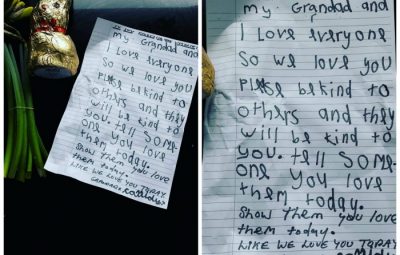 my Grandad and
I Love everyone
So we love you
Please be kind to
others and they
will be kind to
you. tell Some-
one you love
them today.
Show them you love
them today.
LIKE WE LOVE YOU TODAY
my Grandad and
I Love everyone
So we love you
Please be kind to
others and they
will be kind to
you. tell Some-
one you love
them today.
Show them you love
them today.
LIKE WE LOVE YOU TODAY